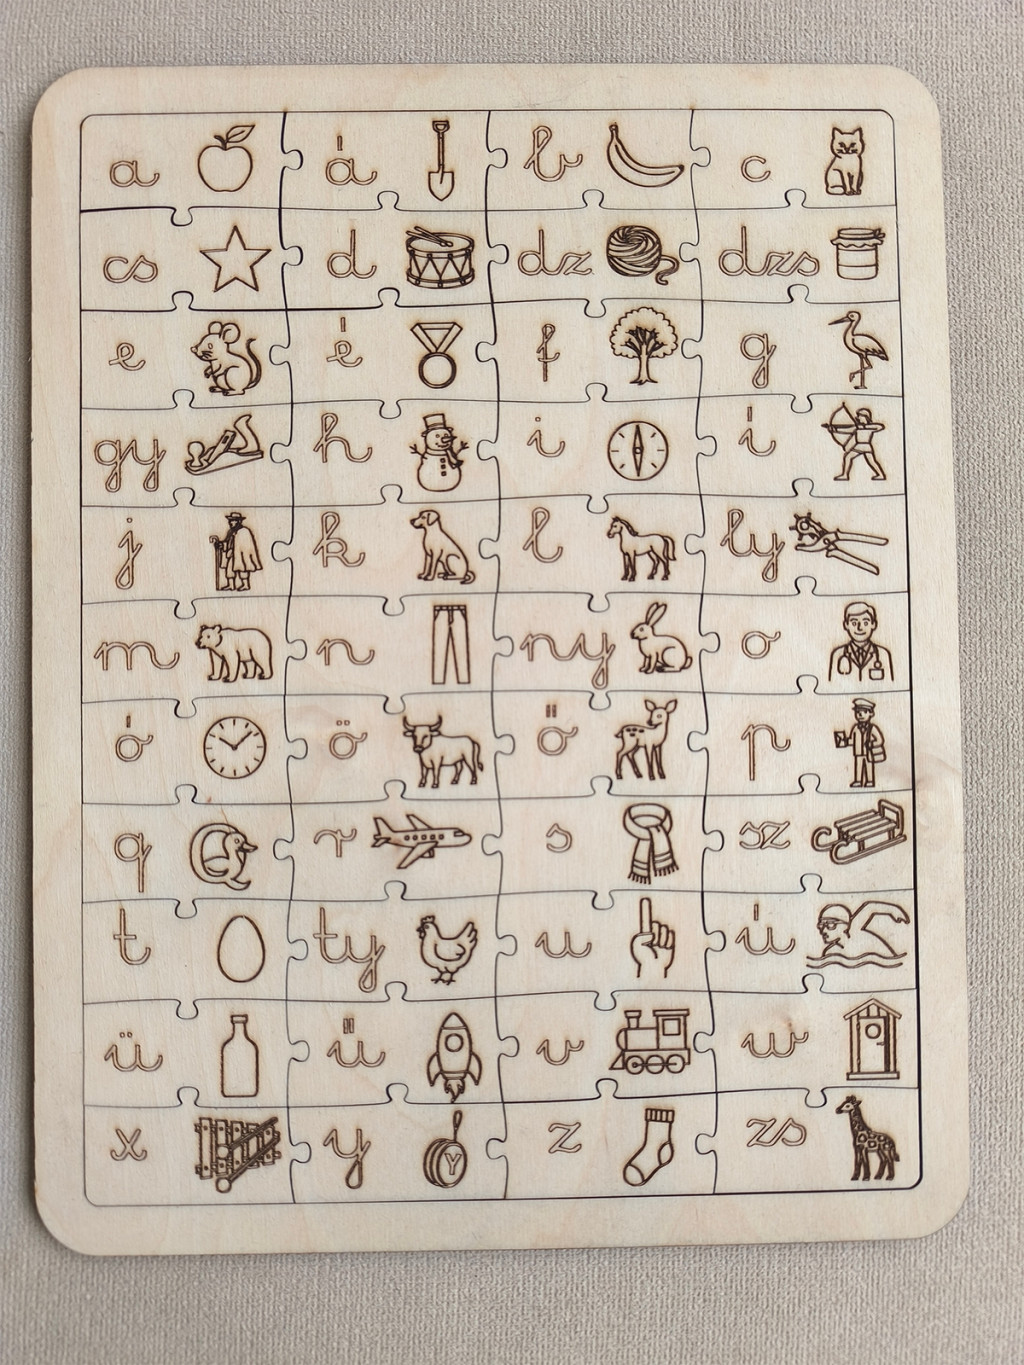 a á b c
cs d dz dzs
e é f g
gy h i í
j k l ly
m n ny o
ó ö ő p
q r s sz
t ty u ú
ü ű v w
x y Y z zs